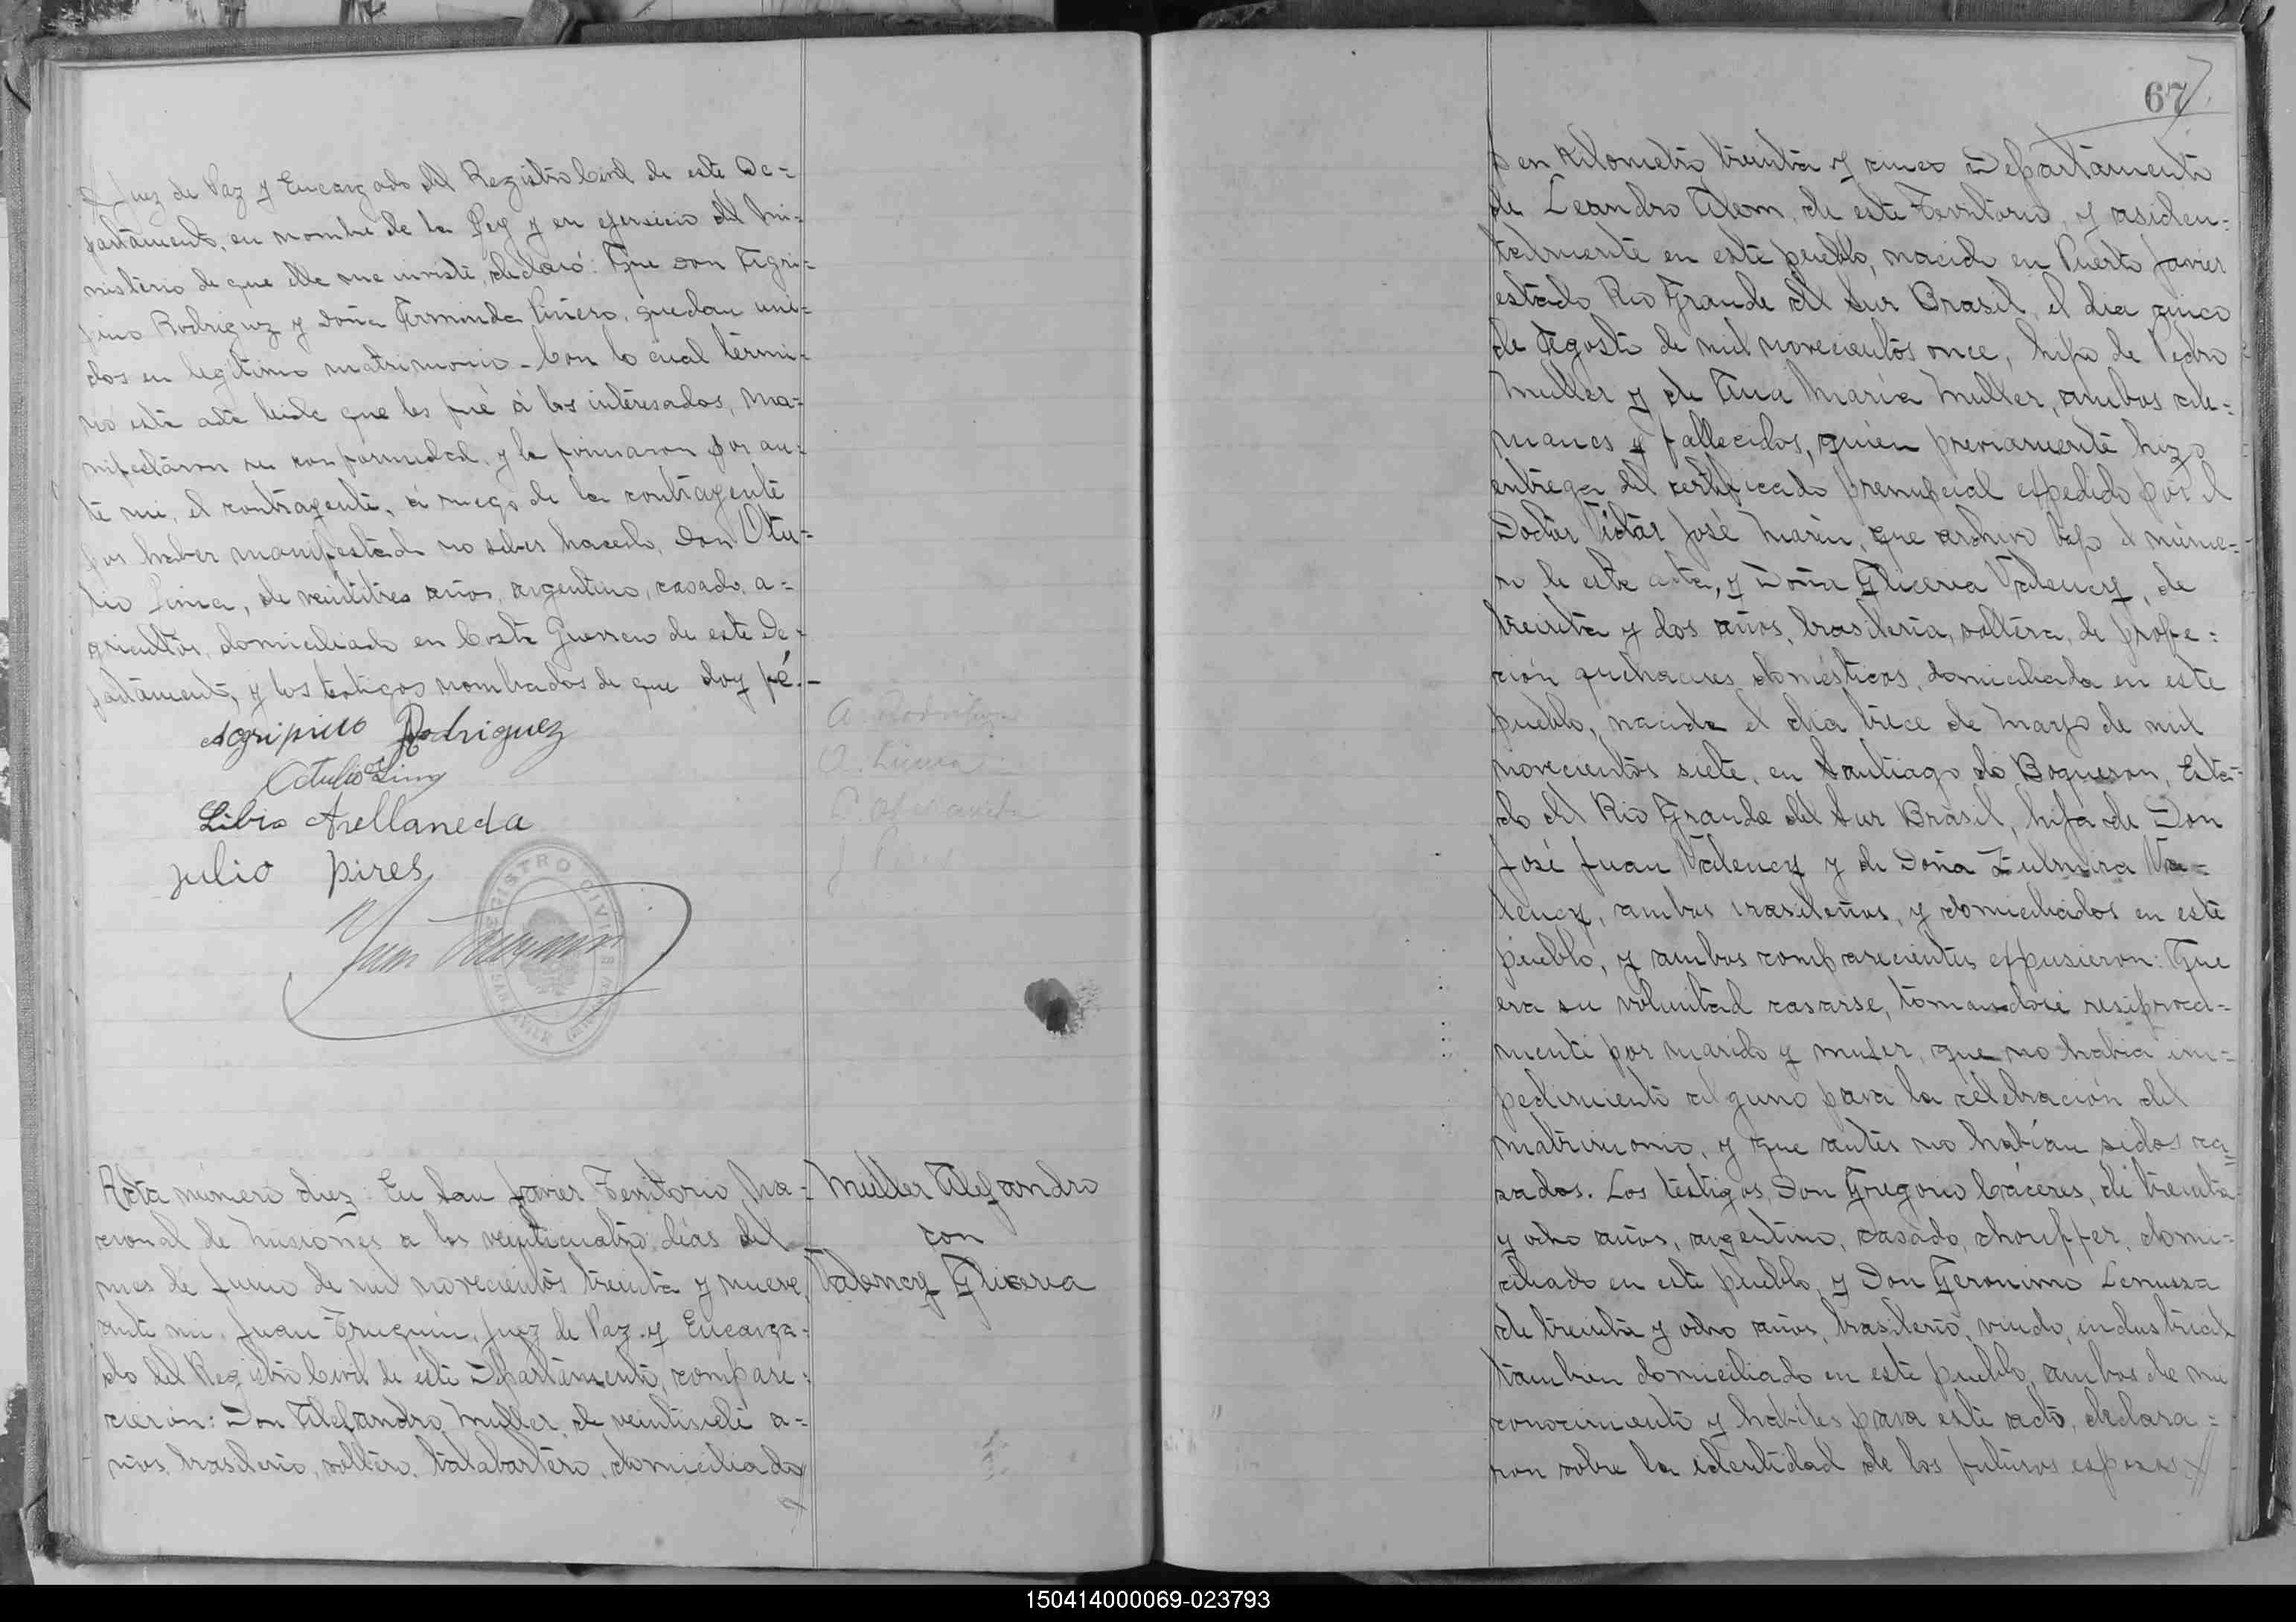 Juez de Paz y Encargado del Registro Civil de este De=
partamento, en nombre de la Ley y en ejersicio del Mi=
nisterio de que ella me inviste, declaró: Que Don Agri=
pino Rodriguez y Doña Erminda Piñero, quedan uni=
dos en legítimo matrimonio - Con lo cual termi=
nó esta acta leida que les fué á los interesados, ma=
nifestaron su conformidad, y la firmaron por an=
te mi, el contrayente, á ruego de la contrayente
por haber manifestado no saber hacerlo, Don Otu=
lio Lima, de veintitres años, argentino, casado, a=
gricultor, domiciliado en Costa Guerrero de este De=
partamento, y los testigos nombrados de que doy fé.-
Agripino Rodriguez
Otulio Lima
Libio Arellaneda
Julio Pires
REGISTRO CIVIL
SAN JAVIER
A. Rodriguez
Acta número diez: En San Javier Territorio Na=
cional de Misiones a los veinticuatro días del
mes de Junio de mil novecientos treinta y nueve,
ante mi, Juan Truquin, Juez de Paz y Encarga=
do del Registro Civil de este Departamento, compare=
cieron: Don Alejandro Muller, de veintisiete a=
ños, brasilerio, soltero, talabartero, domiciliado
Muller Alejandro
con
Valency Gliceria
67
en Kilometro treinta y cinco Departamento
de Leandro Alem, de este Territorio, y asiden=
talmente en este pueblo, nacido en Puerto Javier
estado Rio Grande del Sur Brasil, el dia cinco
de Agosto de mil novecientos once, hijo de Pedro
Muller y de Ana María Muller, ambos ale=
manes y fallecidos, quien previamente hizo
entrega del certificado prenupcial expedido por el
Doctor Victor José Marin, que archivo bajo el núme=
ro de este acta, y Doña Gliceria Valency, de
treinta y dos años, brasileria, soltera, de profe=
ción quehaceres domésticos, domiciliada en este
pueblo, nacida el dia trece de Mayo de mil
novecientos siete, en Santiago do Boqueron, Esta=
do del Rio Grande del Sur Brasil, hija de Don
José Juan Valency y de Doña Zulmira Va=
lency, ambos brasileños, y domiciliados en este
pueblo, y ambos comparecientes expusieron: Que
era su voluntad casarse, tomandose resiproca=
mente por marido y mujer, que no habia im=
pedimento alguno para la celebración del
matrimonio, y que antes no habían sidos ca=
sados. Los testigos, Don Gregorio Cáceres, de treinta
y ocho años, argentino, casado, chouffer, domi=
ciliado en este pueblo, y Don Geronimo Lemussa
de treinta y ocho años, brasilerio, viudo, industrial
tambien domiciliado en este pueblo, ambos de mi
conocimiento y hábiles para este acto, declara=
ron sobre la identidad de los futuros esposos
150414000069-023793